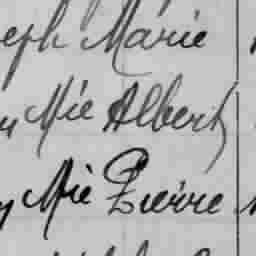 eph Marie
Mie Albert
y Mie Pierre